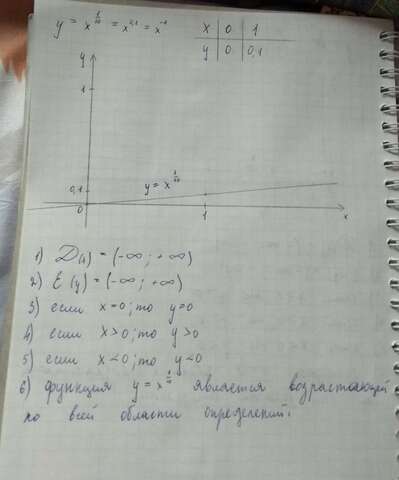 y = x^{1/10} = x^{0,1} = x^{-1}
x 0 1
y 0 0,1
y
1
0,1
y = x^{1/10}
0
1
x
1) D(y) = (-∞; +∞)
2) E(y) = (-∞; +∞)
3) если x=0; то y=0
4) если x>0; то y>0
5) если x<0; то y<0
6) функция y = x^{1/10} является возрастающей
по всей области определений.